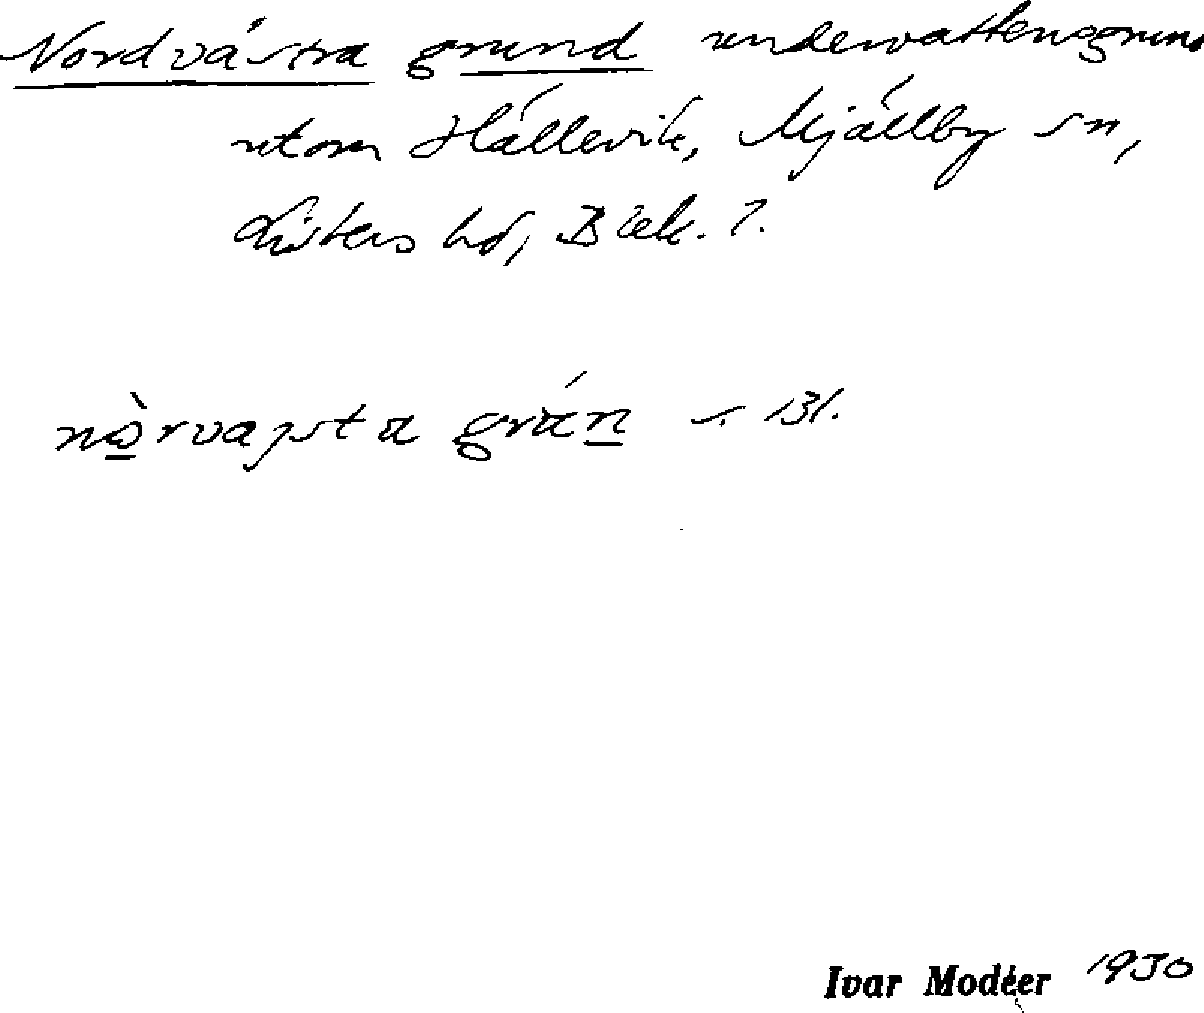 Nordvästra grund undervattensgrund
utom Hällevik, Mjällby sn,
Listers hd, Blek. l.
grán s. 131.
Ivar Modéer 1930